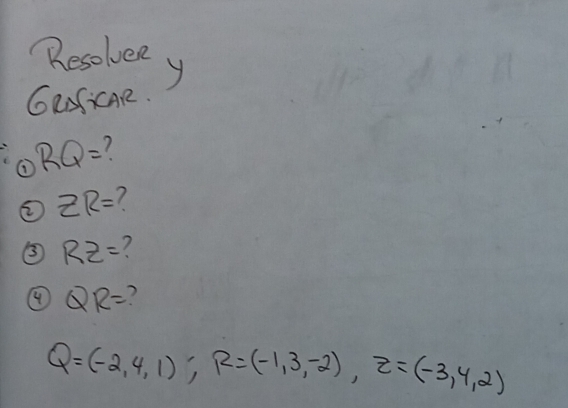 Resolver y
Graficar.
① RQ=?
② ZR=?
③ RZ=?
④ QR=?
Q=(-2,4,1); R=(-1,3,-2), Z=(-3,4,2)